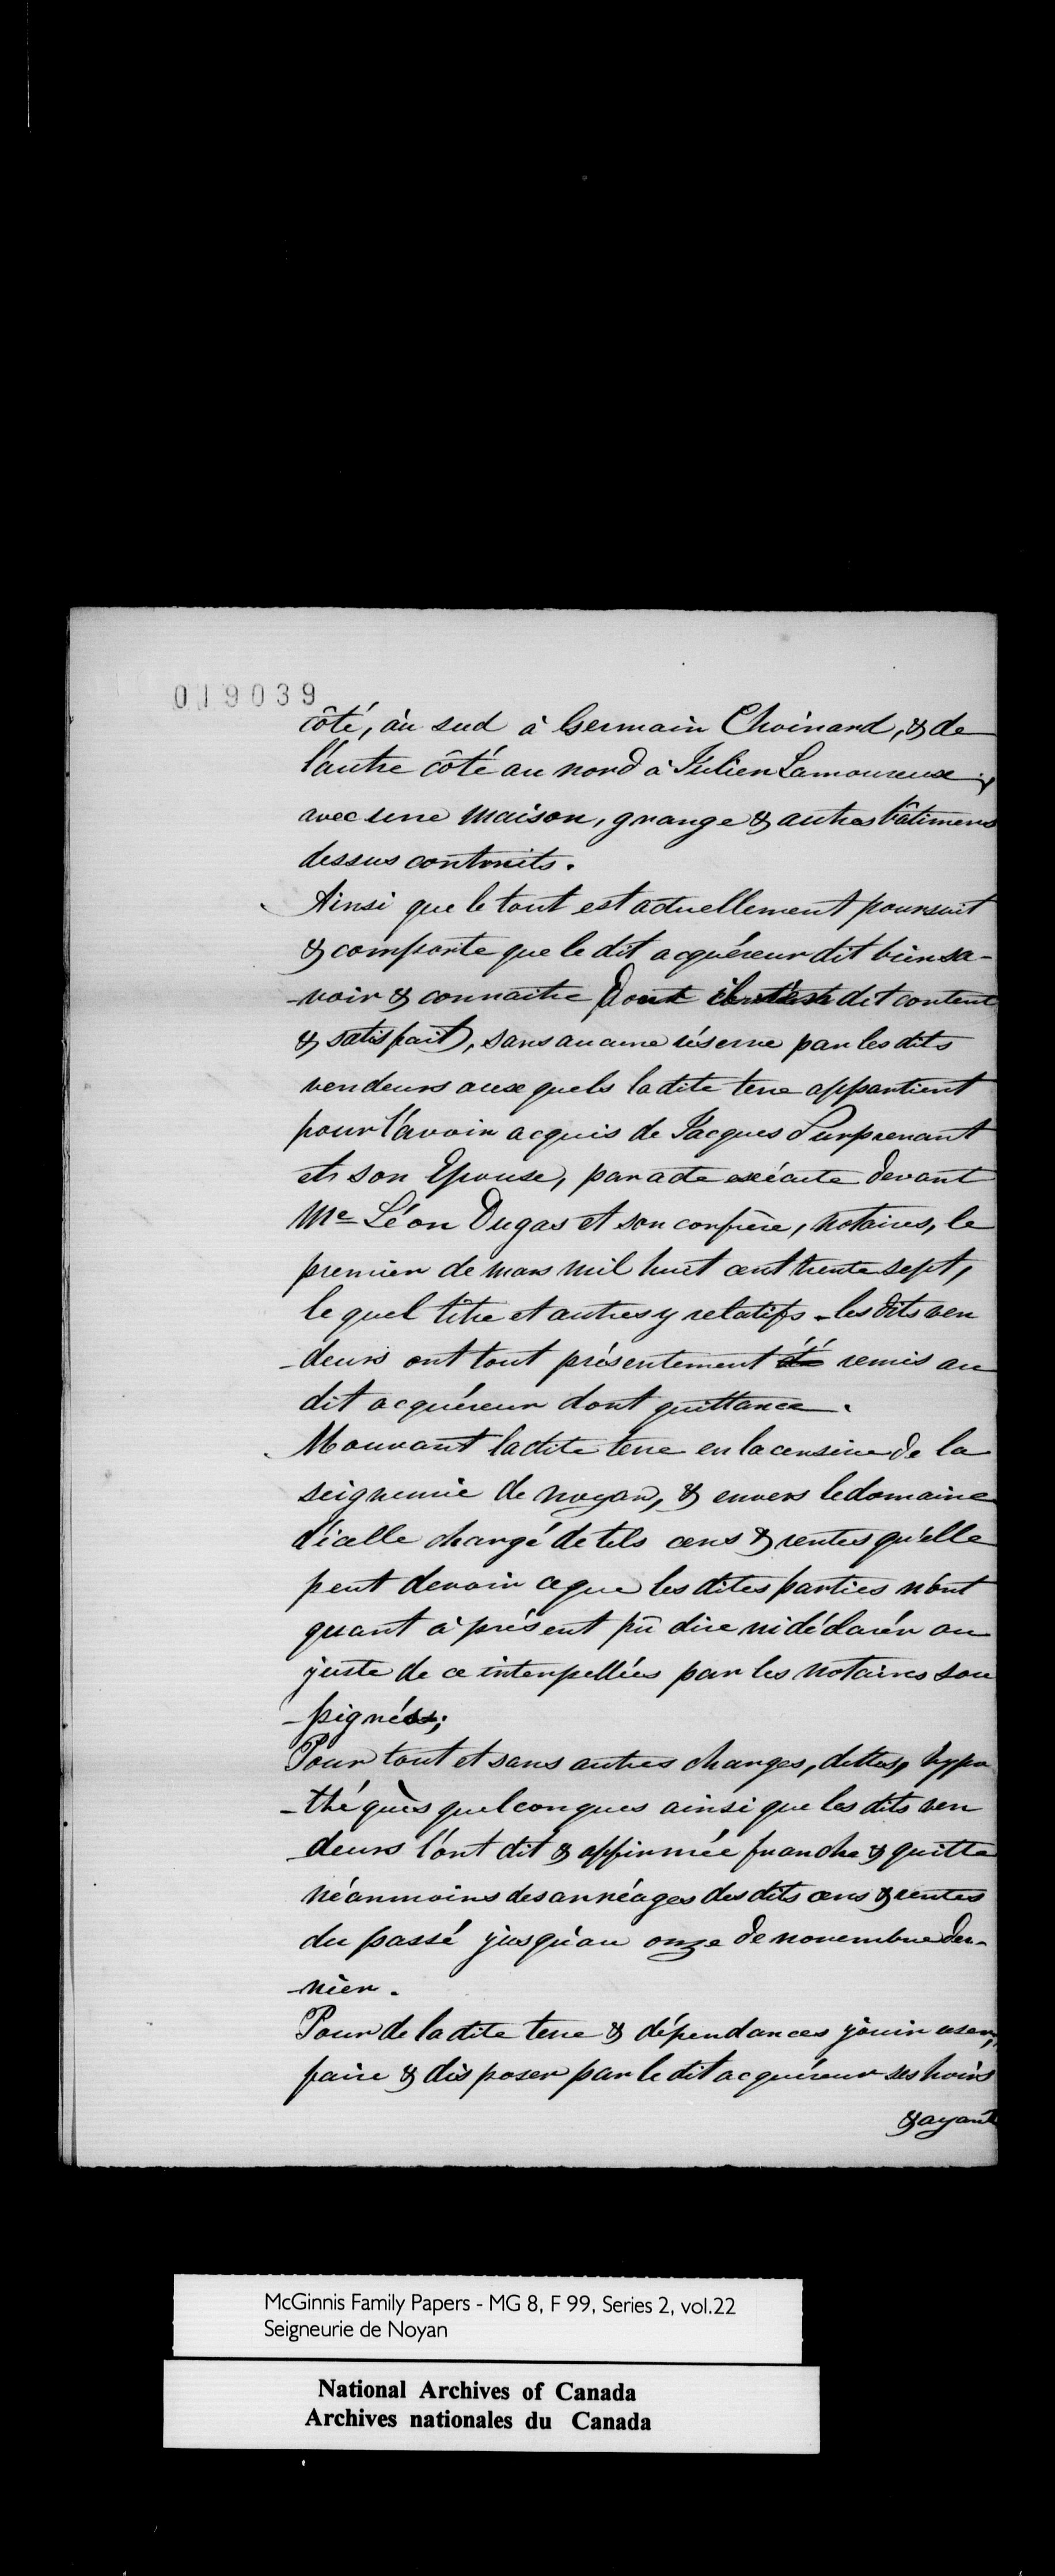 019039
côté, au sud à Germain Choinard, & de
l'autre côté au nord à Julien Lamoureux,
avec une maison, grange & autres bâtimens
dessus contruits.
Ainsi que le tout est actuellement poursuit
& comporte que le dit acquéreur dit bien sa-
-voir & connaitre dont dit content
& satisfait, sans aucune réserve par les dits
vendeurs aux quels la dite terre appartient
pour l'avoir acquis de Jacques Surprenant
et son Epouse, par acte exécuté devant
Me Léon Dugas et son confrère, notaires, le
premier de mars mil huit cent trente sept,
le quel titre et autres y relatifs - les dits ven
-deurs ont tout présentement été remis au
dit acquéreur dont quittance.
Mouvant la dite terre en la censive de la
seigneurie de noyan, & envers le domaine
d'icelle chargé de tels cens & rentes qu'elle
peut devoir ce que les dites parties n'ont
quant à présent pû dire ni déclarér au
juste de ce interpellées par les notaires sou
-signés;
Pour tout et sans autres charges, dettes, hypo
-théques quelconques ainsi que les dits ven
-deurs l'ont dit & affirmée franche & quitte
néanmoins des arréages des dits cens & rentes
du passé jusqu'au onze de novembre der-
-nier.
Pour de la dite terre & dépendances jouir user,
faire & disposer par le dit acquéreur ses hoirs
& ayant
McGinnis Family Papers - MG 8, F 99, Series 2, vol.22
Seigneurie de Noyan
National Archives of Canada
Archives nationales du Canada